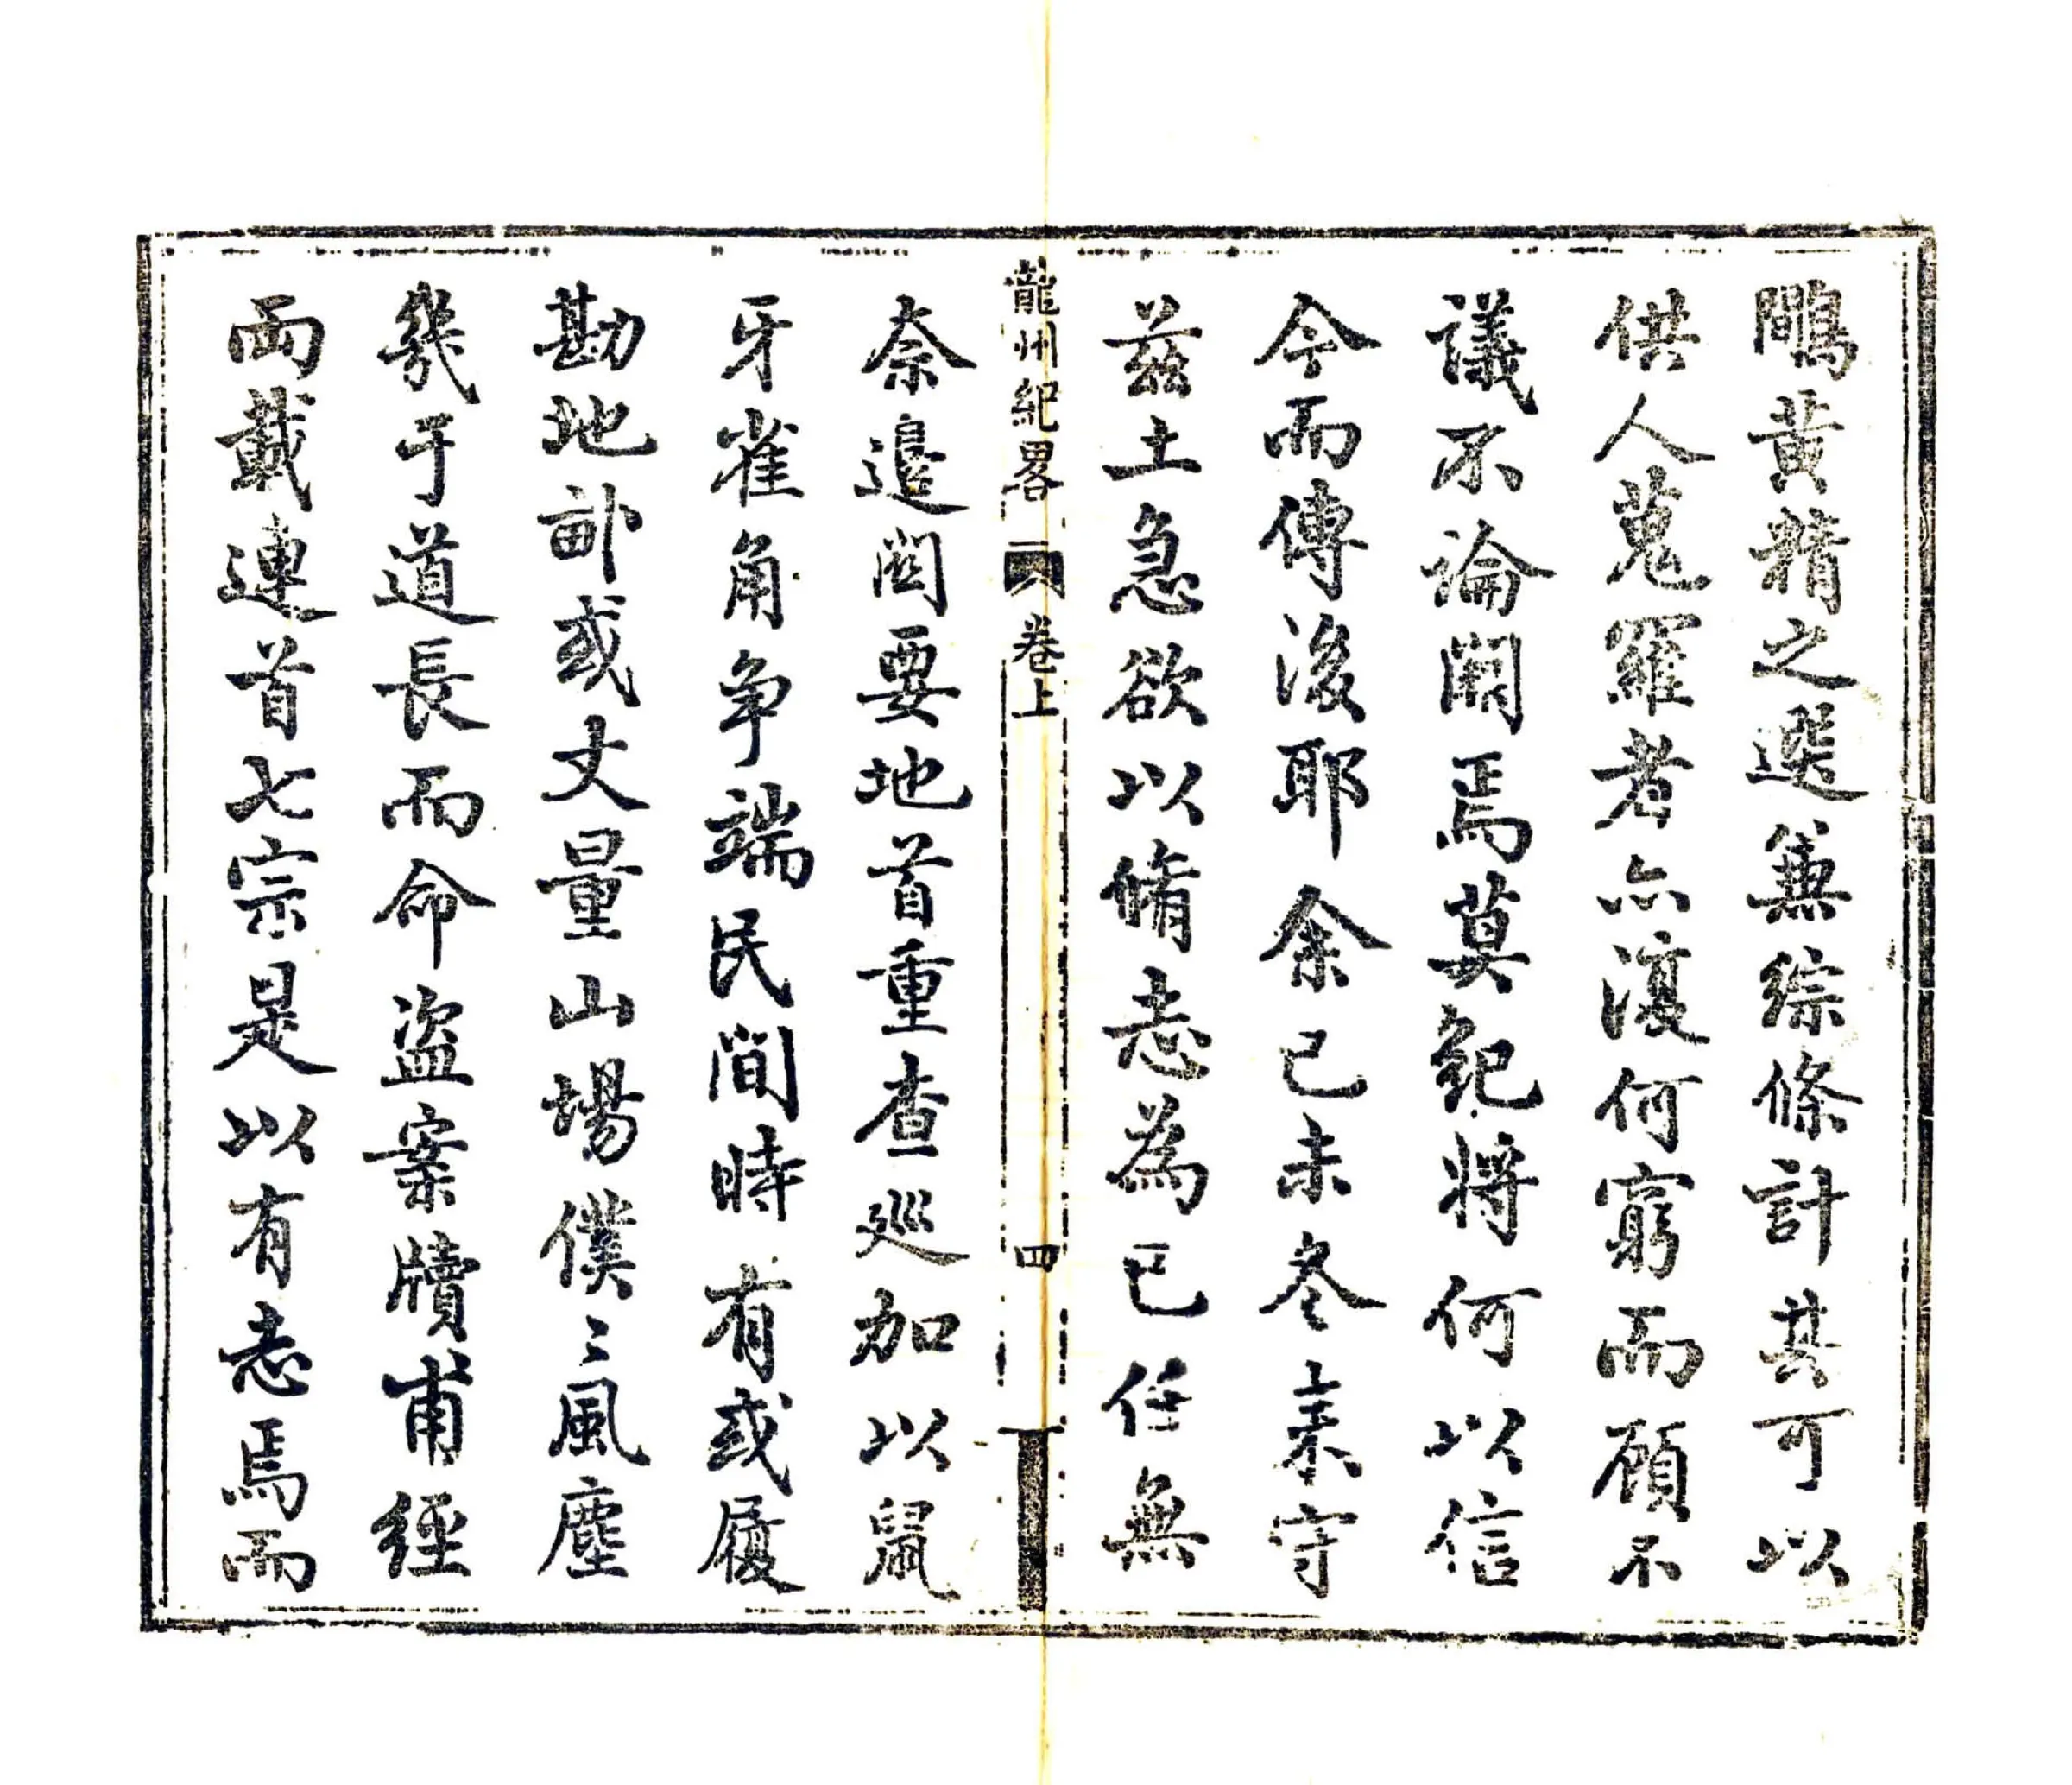 鷴黃精之選兼綜條計其可以
供人蒐羅者亦復何窮而顧不
議不論闕焉莫紀將何以信
今而傳後耶余己未冬來守
茲土急欲以脩志為己任無
龍州紀畧
卷上
四
奈邊關要地首重查巡加以鼠
牙雀角爭端民間時有或履
勘地畝或丈量山場僕〻風塵
幾于道長而命盜案牘甫經
兩載連首七宗是以有志焉而